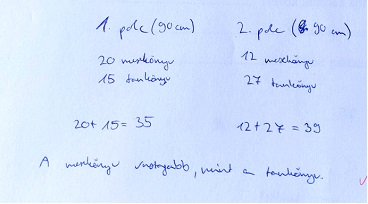 1. polc (90 cm) 2. polc (90 cm)
20 mesekönyv 12 mesekönyv
15 tankönyv 27 tankönyv
20+15=35 12+27=39
A mesekönyv vastagabb, mint a tankönyv.